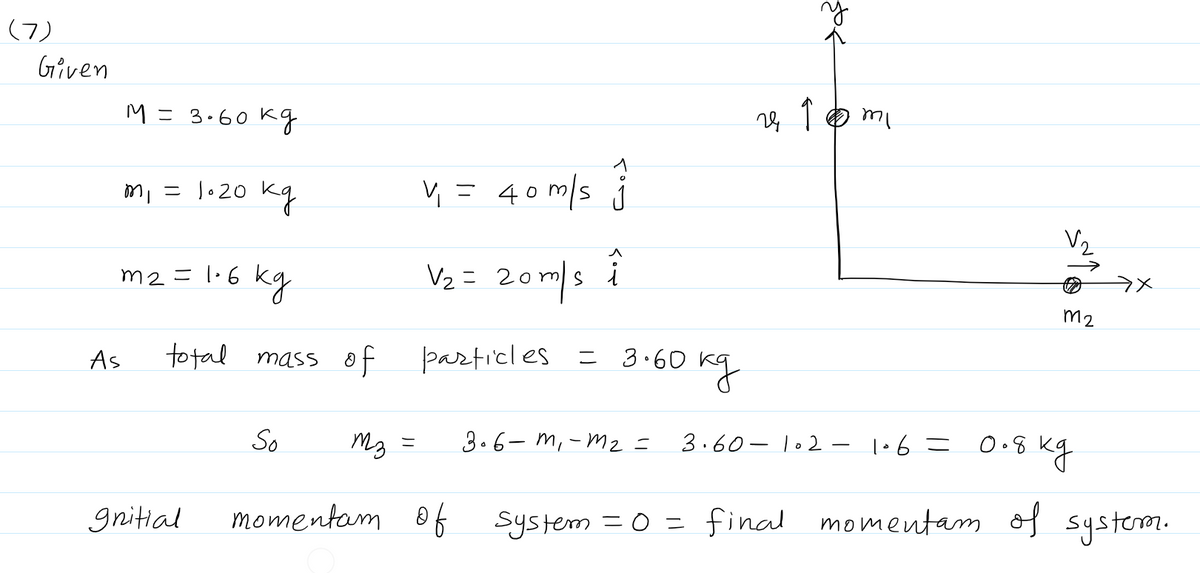 (7)
y
Given
M = 3.60 kg
v₁ ↑ m₁
m₁ = 1.20 kg V₁ = 40 m/s ĵ
V₂
m₂ = 1.6 kg V₂ = 20 m/s î
x
m₂
As total mass of particles = 3.60 kg
So m₃ = 3.6 − m₁ − m₂ = 3.60 − 1.2 − 1.6 = 0.8 kg
Initial momentam of system = 0 = final momentam of system.